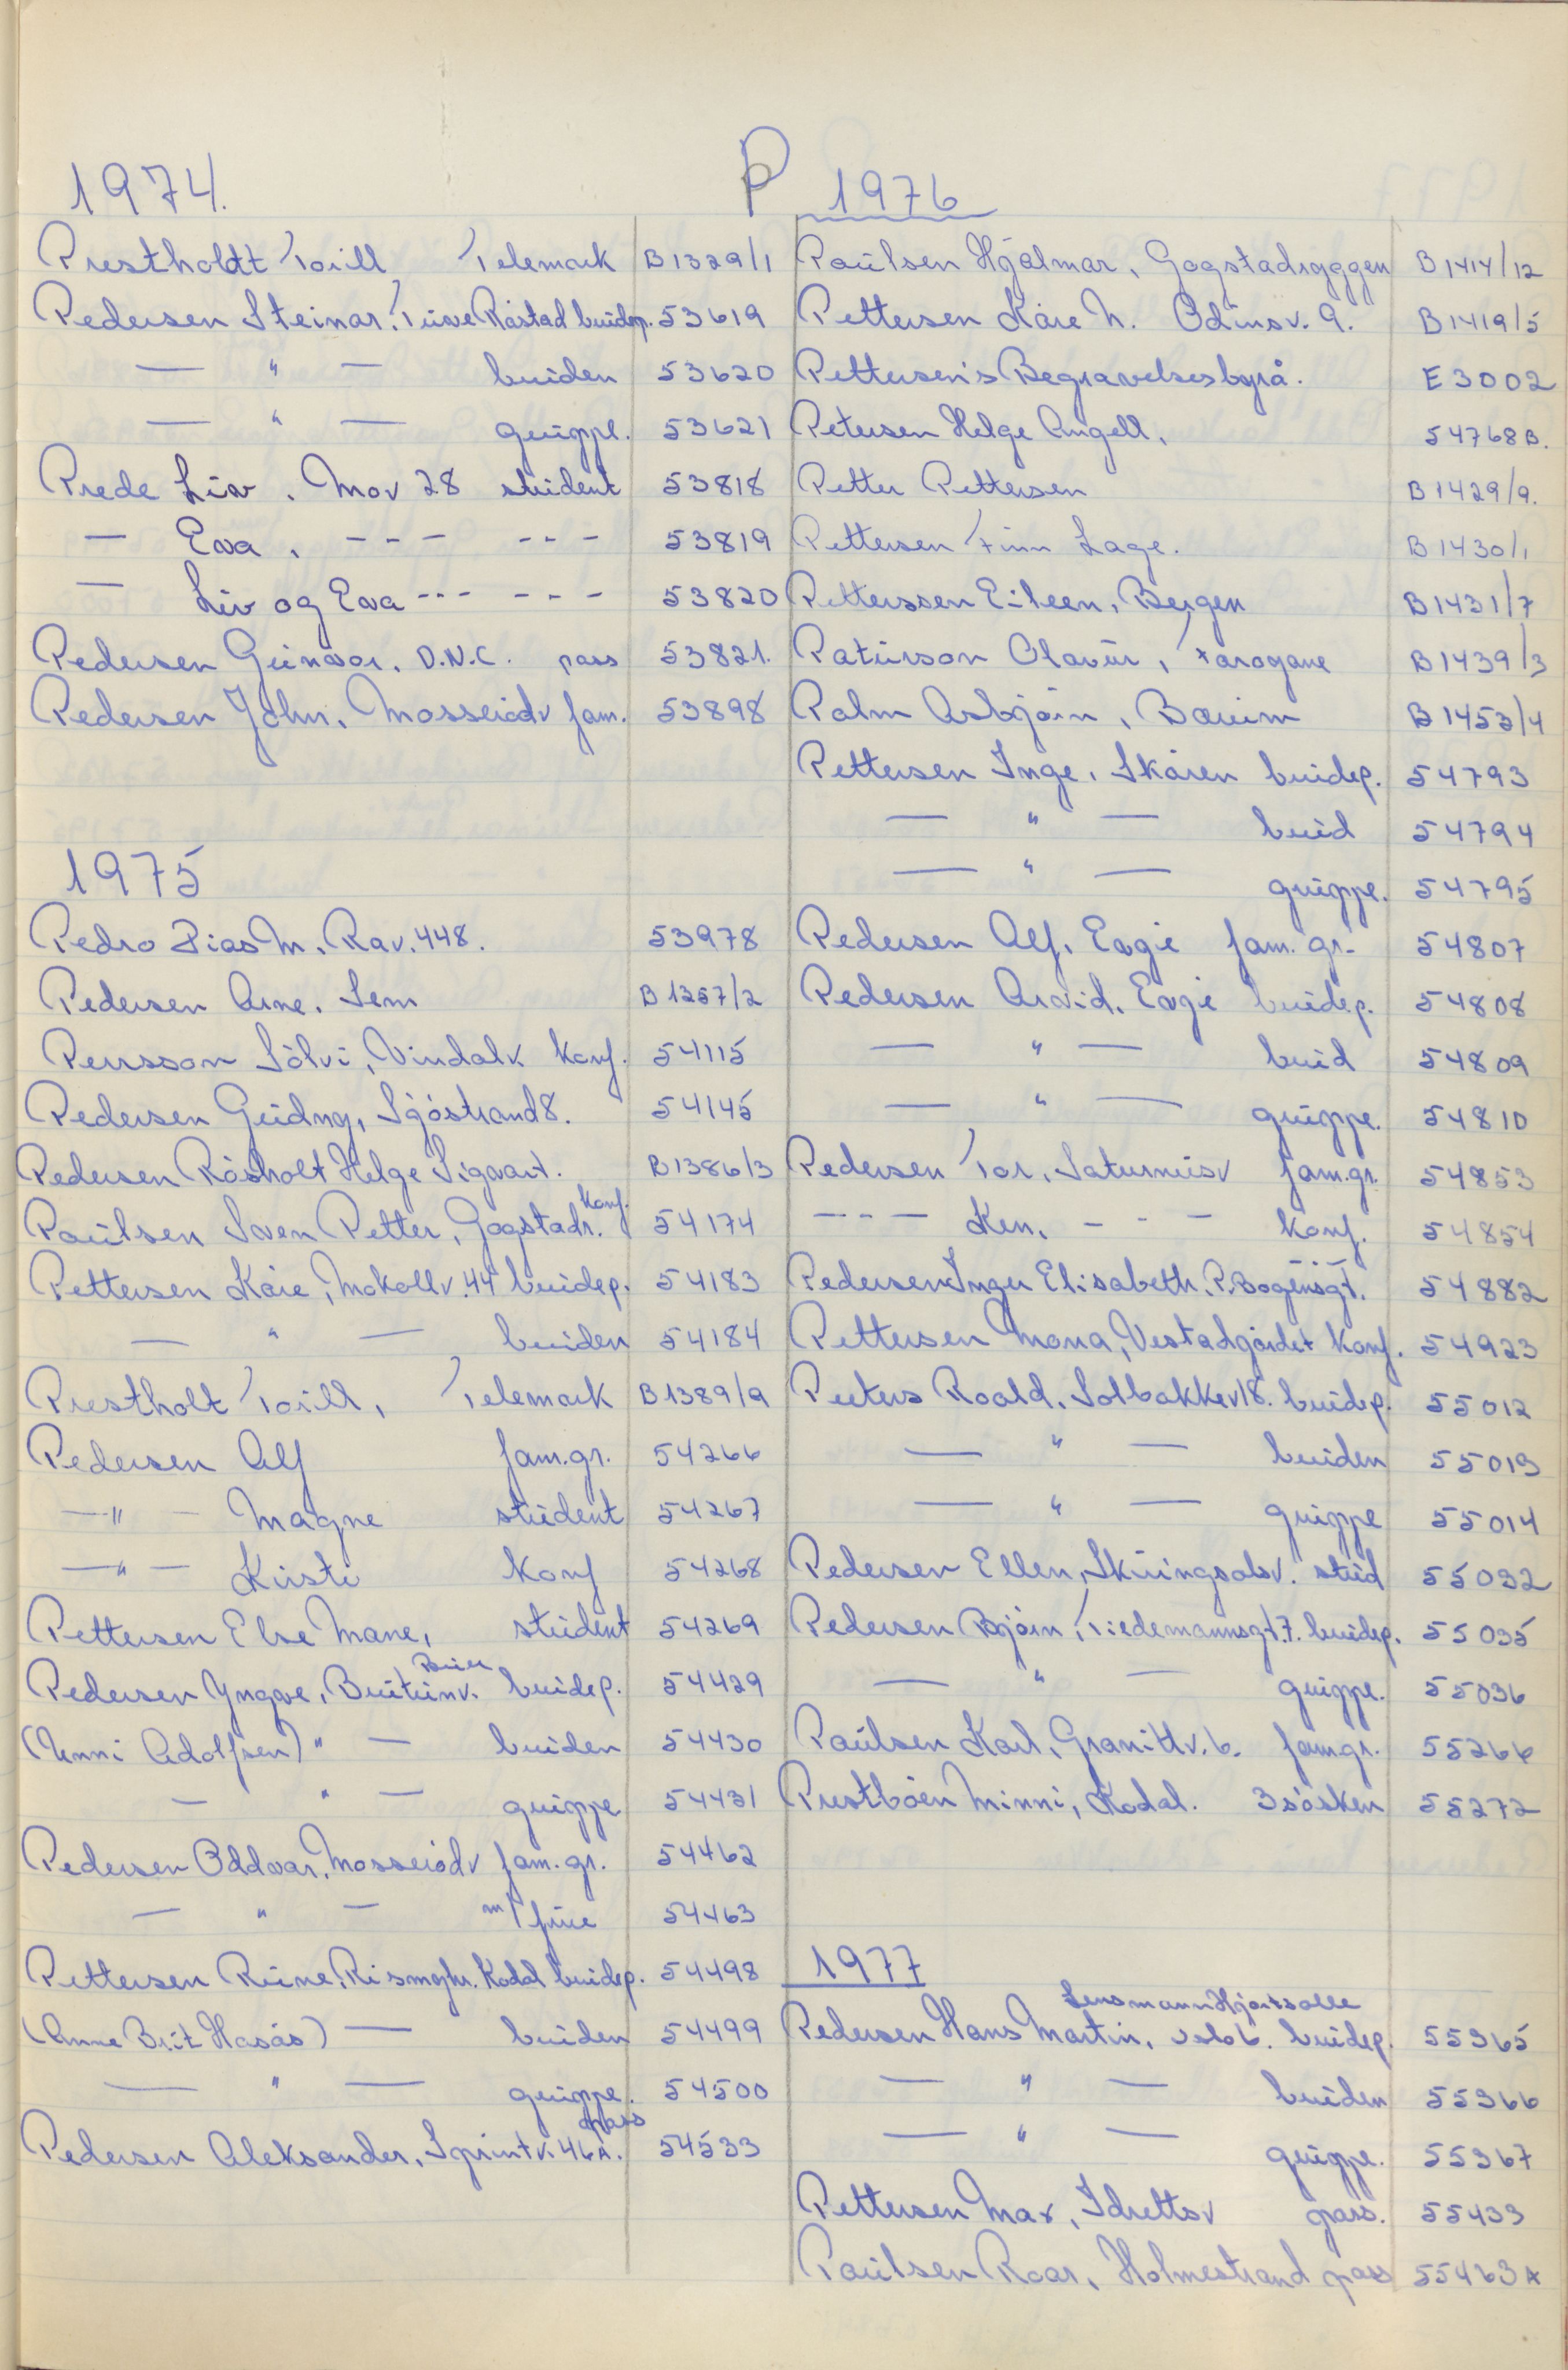 P
1974.
Prestholdt Torill Telemark B1329/1
Pedersen Steinar. Tuve Råstad brudep. 53619
— " — bruden 53620
— " — gruppe. 53621
Prede Liv. Mov 28 student 53818
— Eva. --- --- 53819
— Liv og Eva --- --- 53820
Pedersen Gunvor. D.N.C. pass 53821.
Pedersen John. Mosserødv fam. 53898
1975
Pedro Dias M. Rav. 448. 53978
Pedersen Arne. Sem B1357/2
Persson Sölvi, Vindalv konf. 54115
Pedersen Gudny, Sjöstrand 8. 54145
Pedersen Rösholt Helge Sigvart. B1386/3
Paulsen Sven Petter, Gogstadr. konf. 54174
Pettersen Kåre, Mokollv. 44 brudep. 54183
— " — bruden 54184
Prestholt Torill, Telemark B1389/9
Pedersen Alf fam.gr. 54266
—"— Magne student 54267
—"— Kirsti konf 54268
Pettersen Else Marie, student 54269
Pedersen Yngve, brudep. 54429
(Unni Adolfsen) " — bruden 54430
— " — gruppe 54431
Pedersen Oddvar. Mosserödv fam. gr. 54462
— " — m/frue 54463
Pettersen Rune. Kodal brudep. 54498
(Anne Brit Hasås) — bruden 54499
— " — gruppe. 54500
Pedersen Aleksander. Sprintv. 46A. pass 54533
1976
Paulsen Hjalmar, Gogstadryggen B1414/12
Pettersen Kåre N. Odinsv. 9. B1419/5
Pettersen's Begravelsesbyrå. E3002
Petersen Helge Angell. 54768B.
Petter Pettersen B1429/9.
Pettersen Finn Lage. B1430/1
Petterssen Eileen, Bergen B1431/7
Patursson Olavur, Færøyane B1439/3
Palm Asbjørn, Bærum B1453/4
Pettersen Inge. Skåren brudep. 54793
— " — brud 54794
— " — gruppe. 54795
Pedersen Alf. Eugie fam. gr. 54807
Pedersen Arvid. Eugie brudep. 54808
— " — brud 54809
— " — gruppe. 54810
Pedersen Tor, Saturnusv fam.gr. 54853
--- Ken. --- konf. 54854
Pedersen Inger Elisabeth. P. Bogensgt. --- 54882
Pettersen Mona, Vestadgårdet konf. 54923
Peeters Roald. Solbakkev 18. brudep. 55012
— " — bruden 55013
— " — gruppe 55014
Pedersen Ellen, Skiringsalsv. stud 55032
Pedersen Björn, Tiedemannsgt. 7. brudep. 55035
— " — gruppe. 55036
Paulsen Karl, Granittv. 6. fam.gr. 55266
Prestbøen Minni, Kodal. 3 søsken 55272
1977
Lensmann Hjortsalle
Pedersen Hans Martin, Oslo 6. brudep. 55365
— " — bruden 55366
— " — gruppe. 55367
Pettersen Max, Idrettsv pass. 55433
Paulsen Roar, Holmestrand pass 55463A